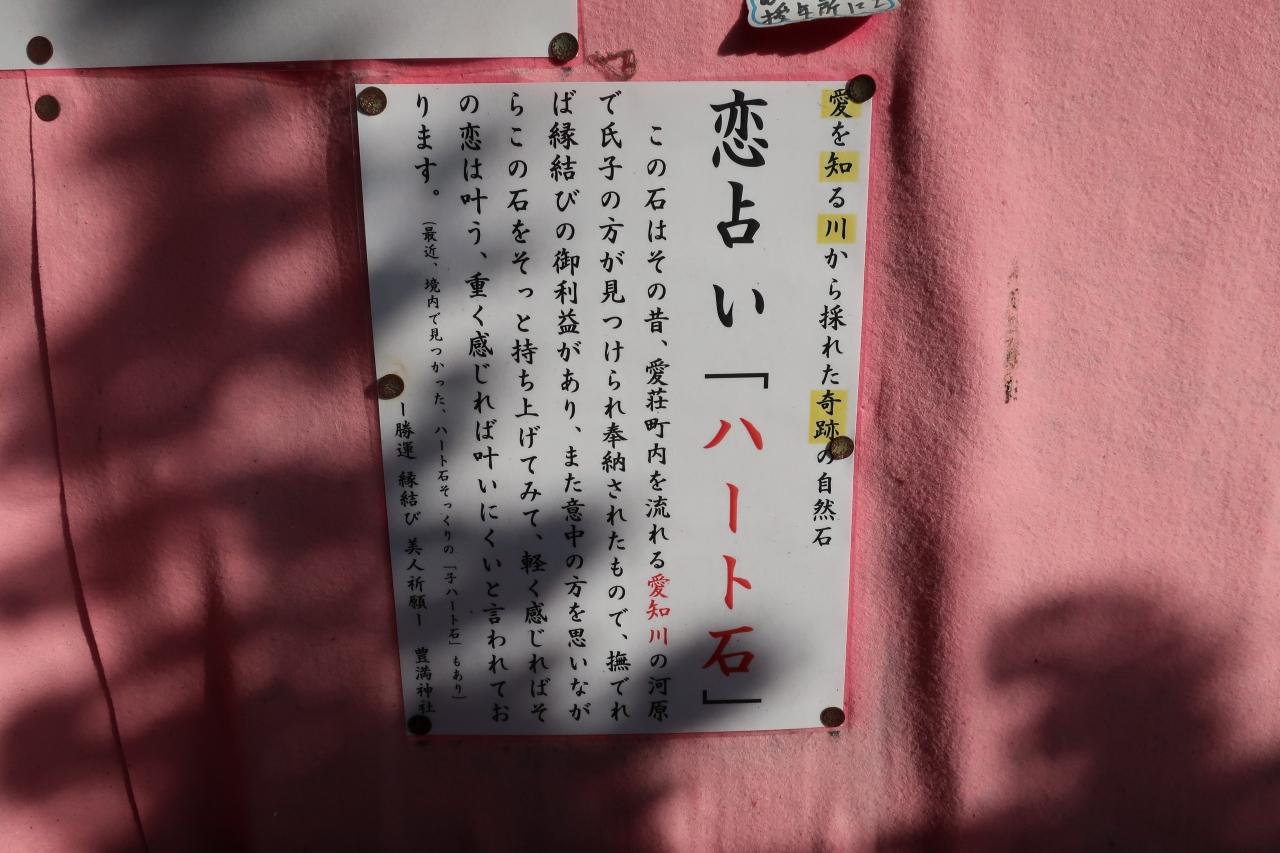 授与所にて
愛を知る川から採れた奇跡の自然石
恋占い「ハート石」
この石はその昔、愛荘町内を流れる愛知川の河原
で氏子の方が見つけられ奉納されたもので、撫でれ
ば縁結びの御利益があり、また意中の方を思いなが
らこの石をそっと持ち上げてみて、軽く感じればそ
の恋は叶う、重く感じれば叶いにくいと言われてお
ります。
（最近、境内で見つかった、ハート石そっくりの「子ハート石」もあり）
ー勝運 縁結び 美人祈願ー 豊満神社